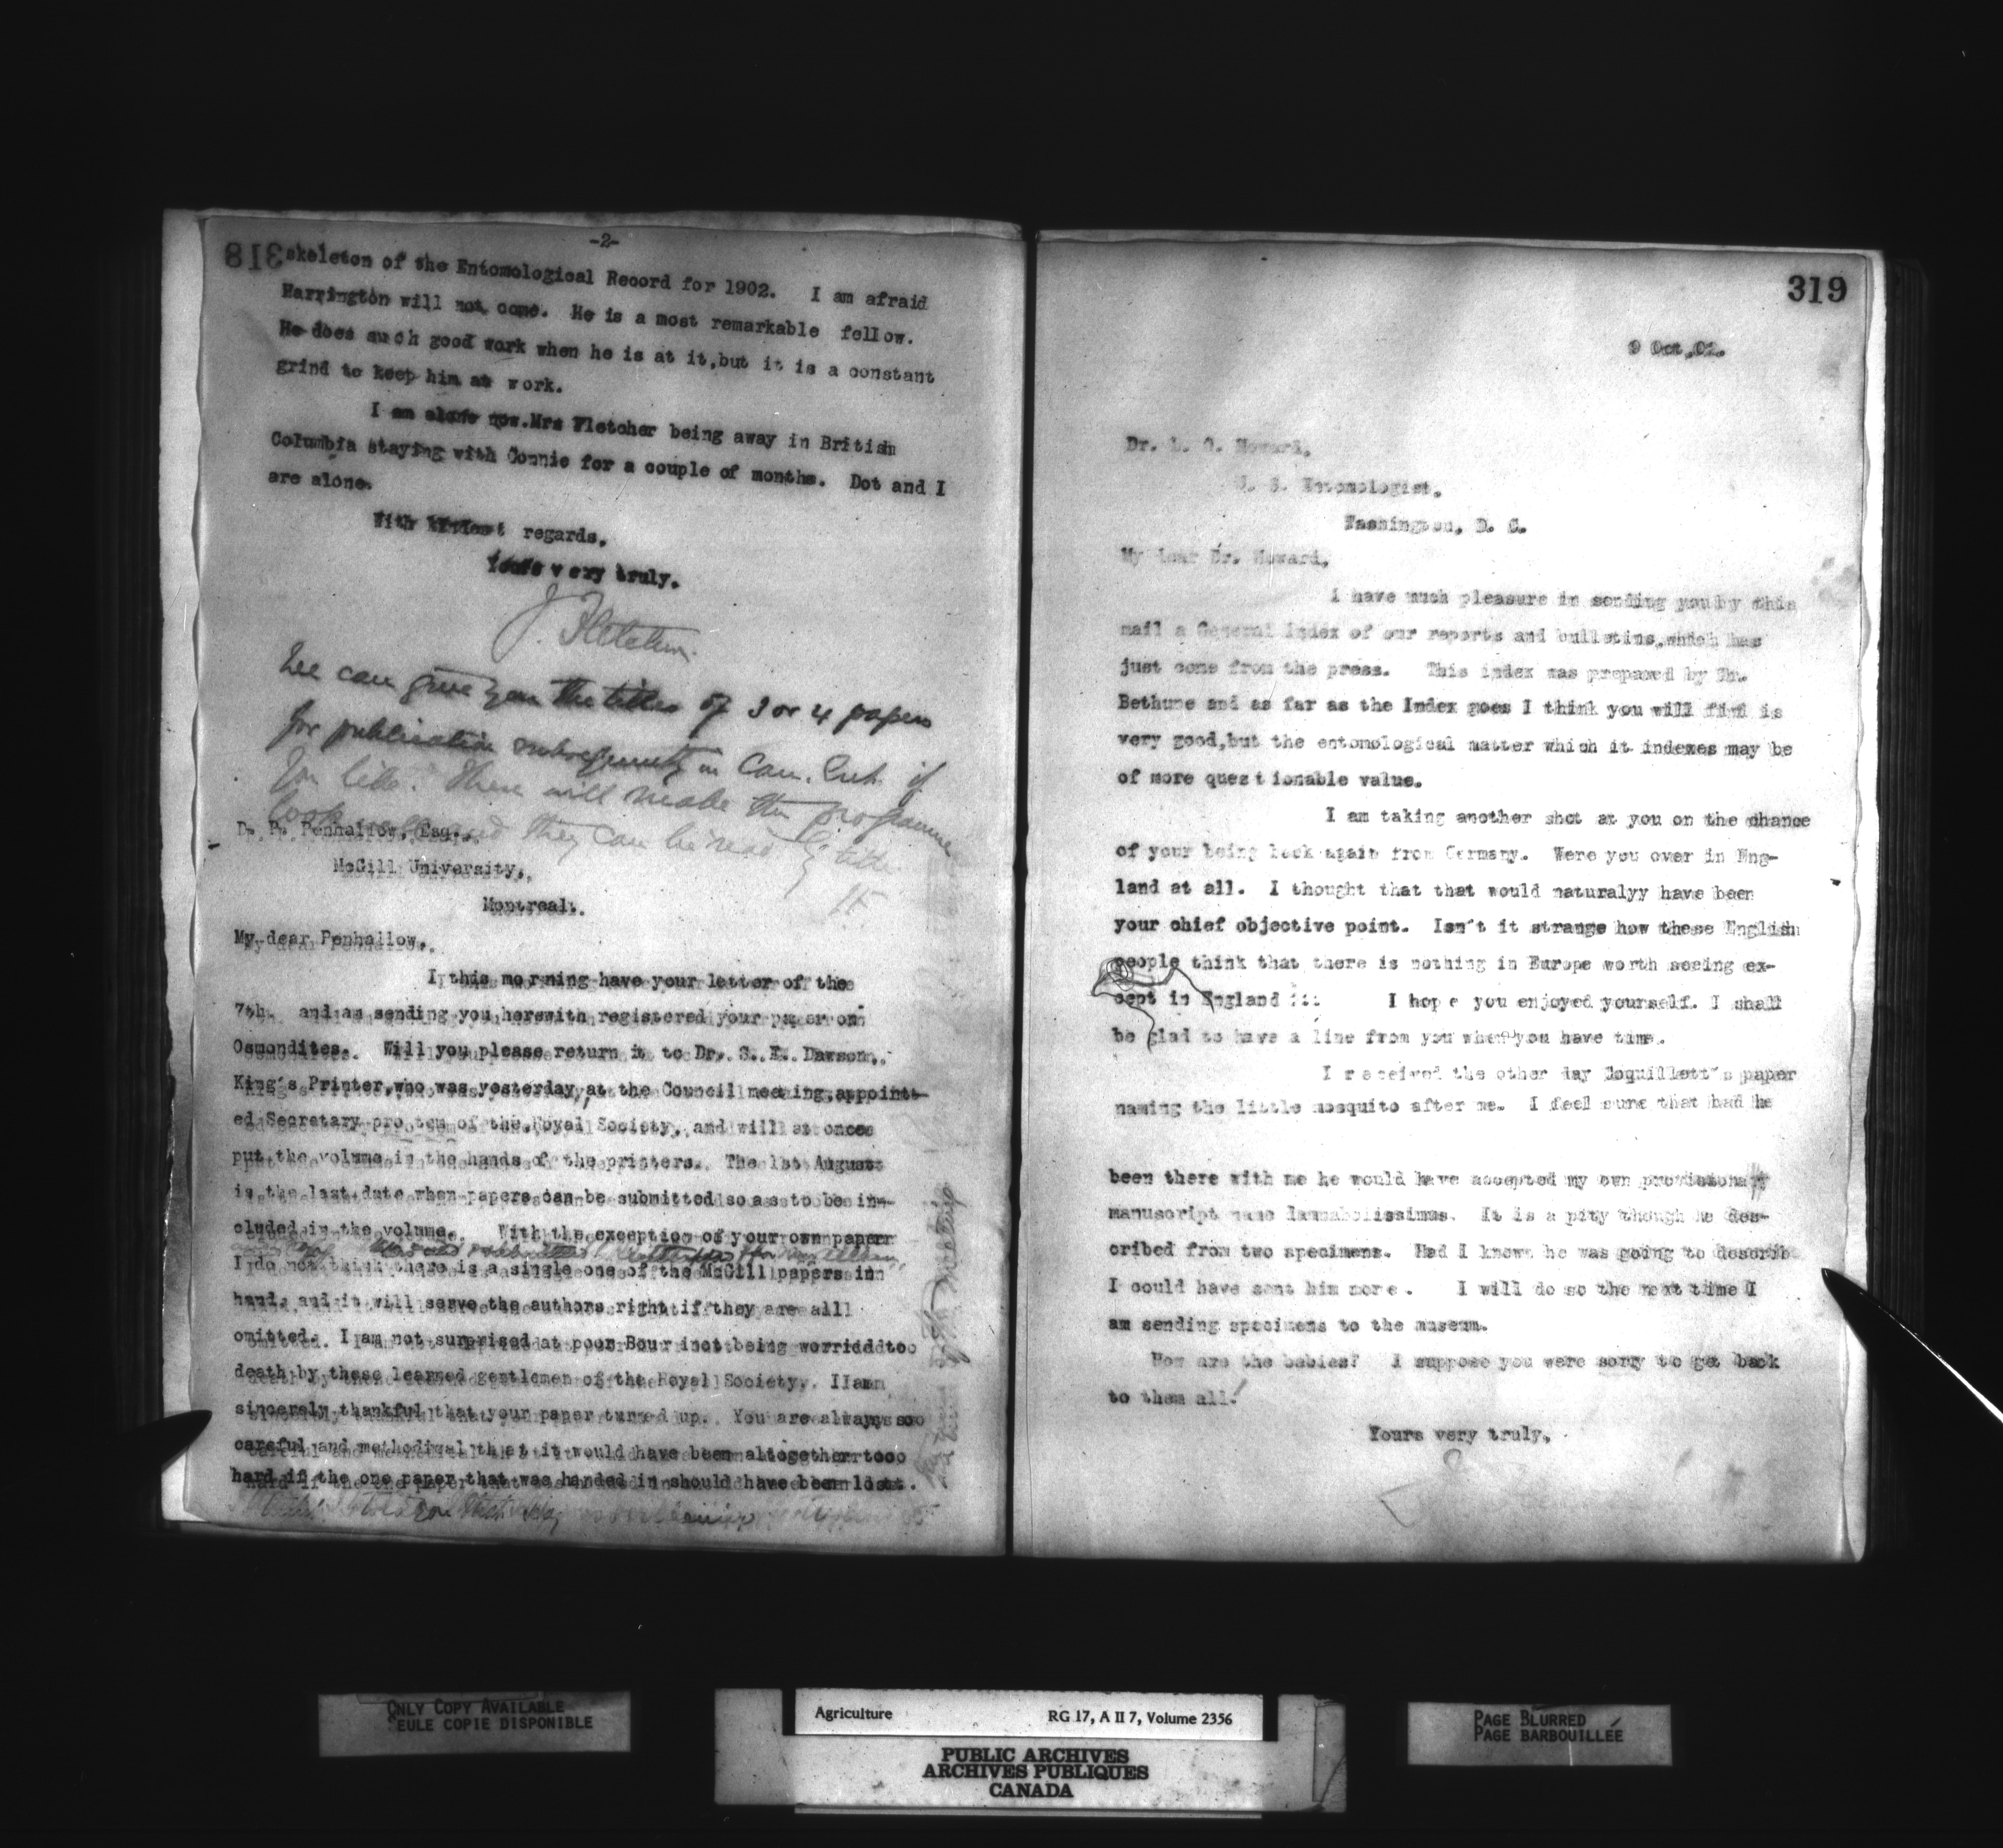 -2-
318
skeleton of the Entomological Record for 1902. I am afraid
Harrington will not come. He is a most remarkable fellow.
He does such good work when he is at it,but it is a constant
grind to keep him at work.
I am alone now.Mrs Fletcher being away in British
Columbia staying with Connie for a couple of months. Dot and I
are alone.
With kindest regards,
Yours very truly.
J. Fletcher.
We can give you the titles of 3 or 4 papers
for publication subsequently in Can. Ent. if
you like. These will make the programme
look and they can be read by title.
JF
D. P. Penhallow, Esq.,
McGill University,
Montreal.
My dear Penhallow,
I this morning have your letter of the
7th. and am sending you herewith registered your paper on
Osmondites. Will you please return it to Dr. S. E. Dawson,
King's Printer,who was yesterday,at the Council meeting,appoint-
ed Secretary pro tem of the Royal Society, and will at once
put the volume in the hands of the printers. The 1st August
is the last date when papers can be submitted so as to be in-
cluded in the volume. With the exception of your own paper
I do not think there is a single one of the McGill papers in
hand, and it will serve the authors right if they are all
omitted. I am not surprised at poor Bourinot being worried to
death by these learned gentlemen of the Royal Society. I am
sincerely thankful that your paper turned up. You are always so
careful and methodical that it would have been altogether too
hard if the one paper that was handed in should have been lost.
319
9 Oct.02.
Dr. L. O. Howard,
U. S. Entomologist,
Washington, D. C.
My dear Dr. Howard,
I have much pleasure in sending you by this
mail a General Index of our reports and bulletins,which has
just come from the press. This index was prepared by Dr.
Bethune and as far as the Index goes I think you will find is
very good,but the entomological matter which it indexes may be
of more questionable value.
I am taking another shot at you on the chance
of your being back again from Germany. Were you over in Eng-
land at all. I thought that that would naturalyy have been
your chief objective point. Isn't it strange how these English
people think that there is nothing in Europe worth seeing ex-
cept in England !!! I hope you enjoyed yourself. I shall
be glad to have a line from you when you have time.
I received the other day Coquillett's paper
naming the little mosquito after me. I feel sure that had he
been there with me he would have accepted my own provisionary
manuscript name It is a pity though he des-
cribed from two specimens. Had I known he was going to describe
I could have sent him more. I will do so the next time I
am sending specimens to the museum.
How are the babies? I suppose you were sorry to get back
to them all!
Yours very truly,
ONLY COPY AVAILABLE
SEULE COPIE DISPONIBLE
Agriculture RG 17, A II 7, Volume 2356
PUBLIC ARCHIVES
ARCHIVES PUBLIQUES
CANADA
PAGE BLURRED
PAGE BARBOUILLÉE